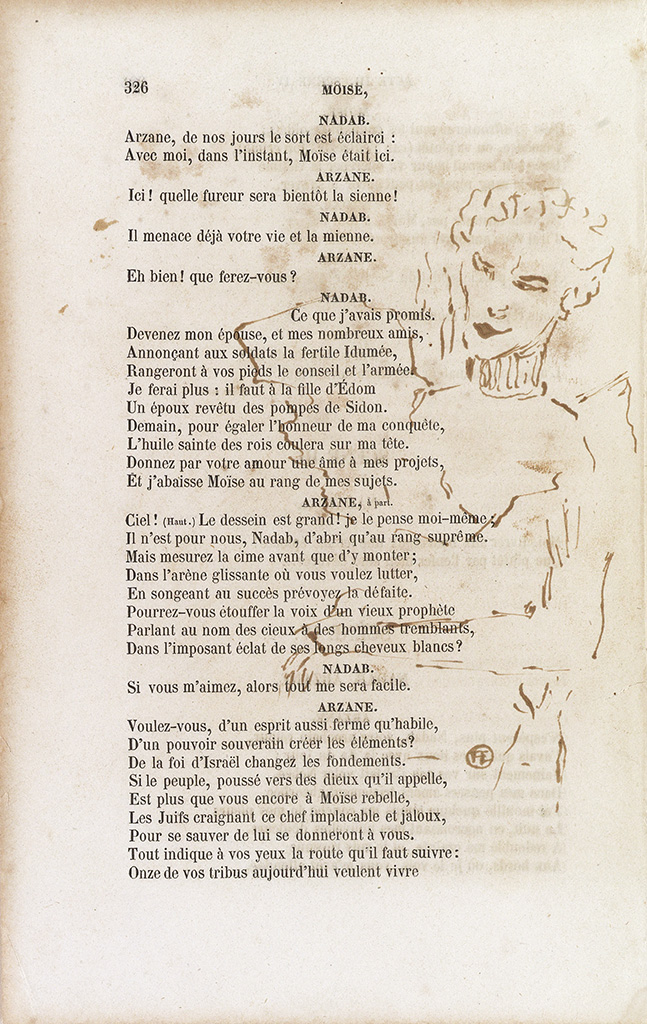 326
MOÏSE,
NADAB.
Arzane, de nos jours le sort est éclairci :
Avec moi, dans l'instant, Moïse était ici.
ARZANE.
Ici ! quelle fureur sera bientôt la sienne !
NADAB.
Il menace déjà votre vie et la mienne.
ARZANE.
Eh bien ! que ferez-vous ?
NADAB.
Ce que j'avais promis.
Devenez mon épouse, et mes nombreux amis,
Annonçant aux soldats la fertile Idumée,
Rangeront à vos pieds le conseil et l'armée.
Je ferai plus : il faut à la fille d'Édom
Un époux revêtu des pompes de Sidon.
Demain, pour égaler l'honneur de ma conquête,
L'huile sainte des rois coulera sur ma tête.
Donnez par votre amour une âme à mes projets,
Et j'abaisse Moïse au rang de mes sujets.
ARZANE, à part.
Ciel ! (Haut.) Le dessein est grand ! je le pense moi-même ;
Il n'est pour nous, Nadab, d'abri qu'au rang suprême.
Mais mesurez la cime avant que d'y monter ;
Dans l'arène glissante où vous voulez lutter,
En songeant au succès prévoyez la défaite.
Pourrez-vous étouffer la voix d'un vieux prophète
Parlant au nom des cieux à des hommes tremblants,
Dans l'imposant éclat de ses longs cheveux blancs ?
NADAB.
Si vous m'aimez, alors tout me sera facile.
ARZANE.
Voulez-vous, d'un esprit aussi ferme qu'habile,
D'un pouvoir souverain créer les éléments ?
De la foi d'Israël changez les fondements.
Si le peuple, poussé vers des dieux qu'il appelle,
Est plus que vous encore à Moïse rebelle,
Les Juifs craignant ce chef implacable et jaloux,
Pour se sauver de lui se donneront à vous.
Tout indique à vos yeux la route qu'il faut suivre :
Onze de vos tribus aujourd'hui veulent vivre